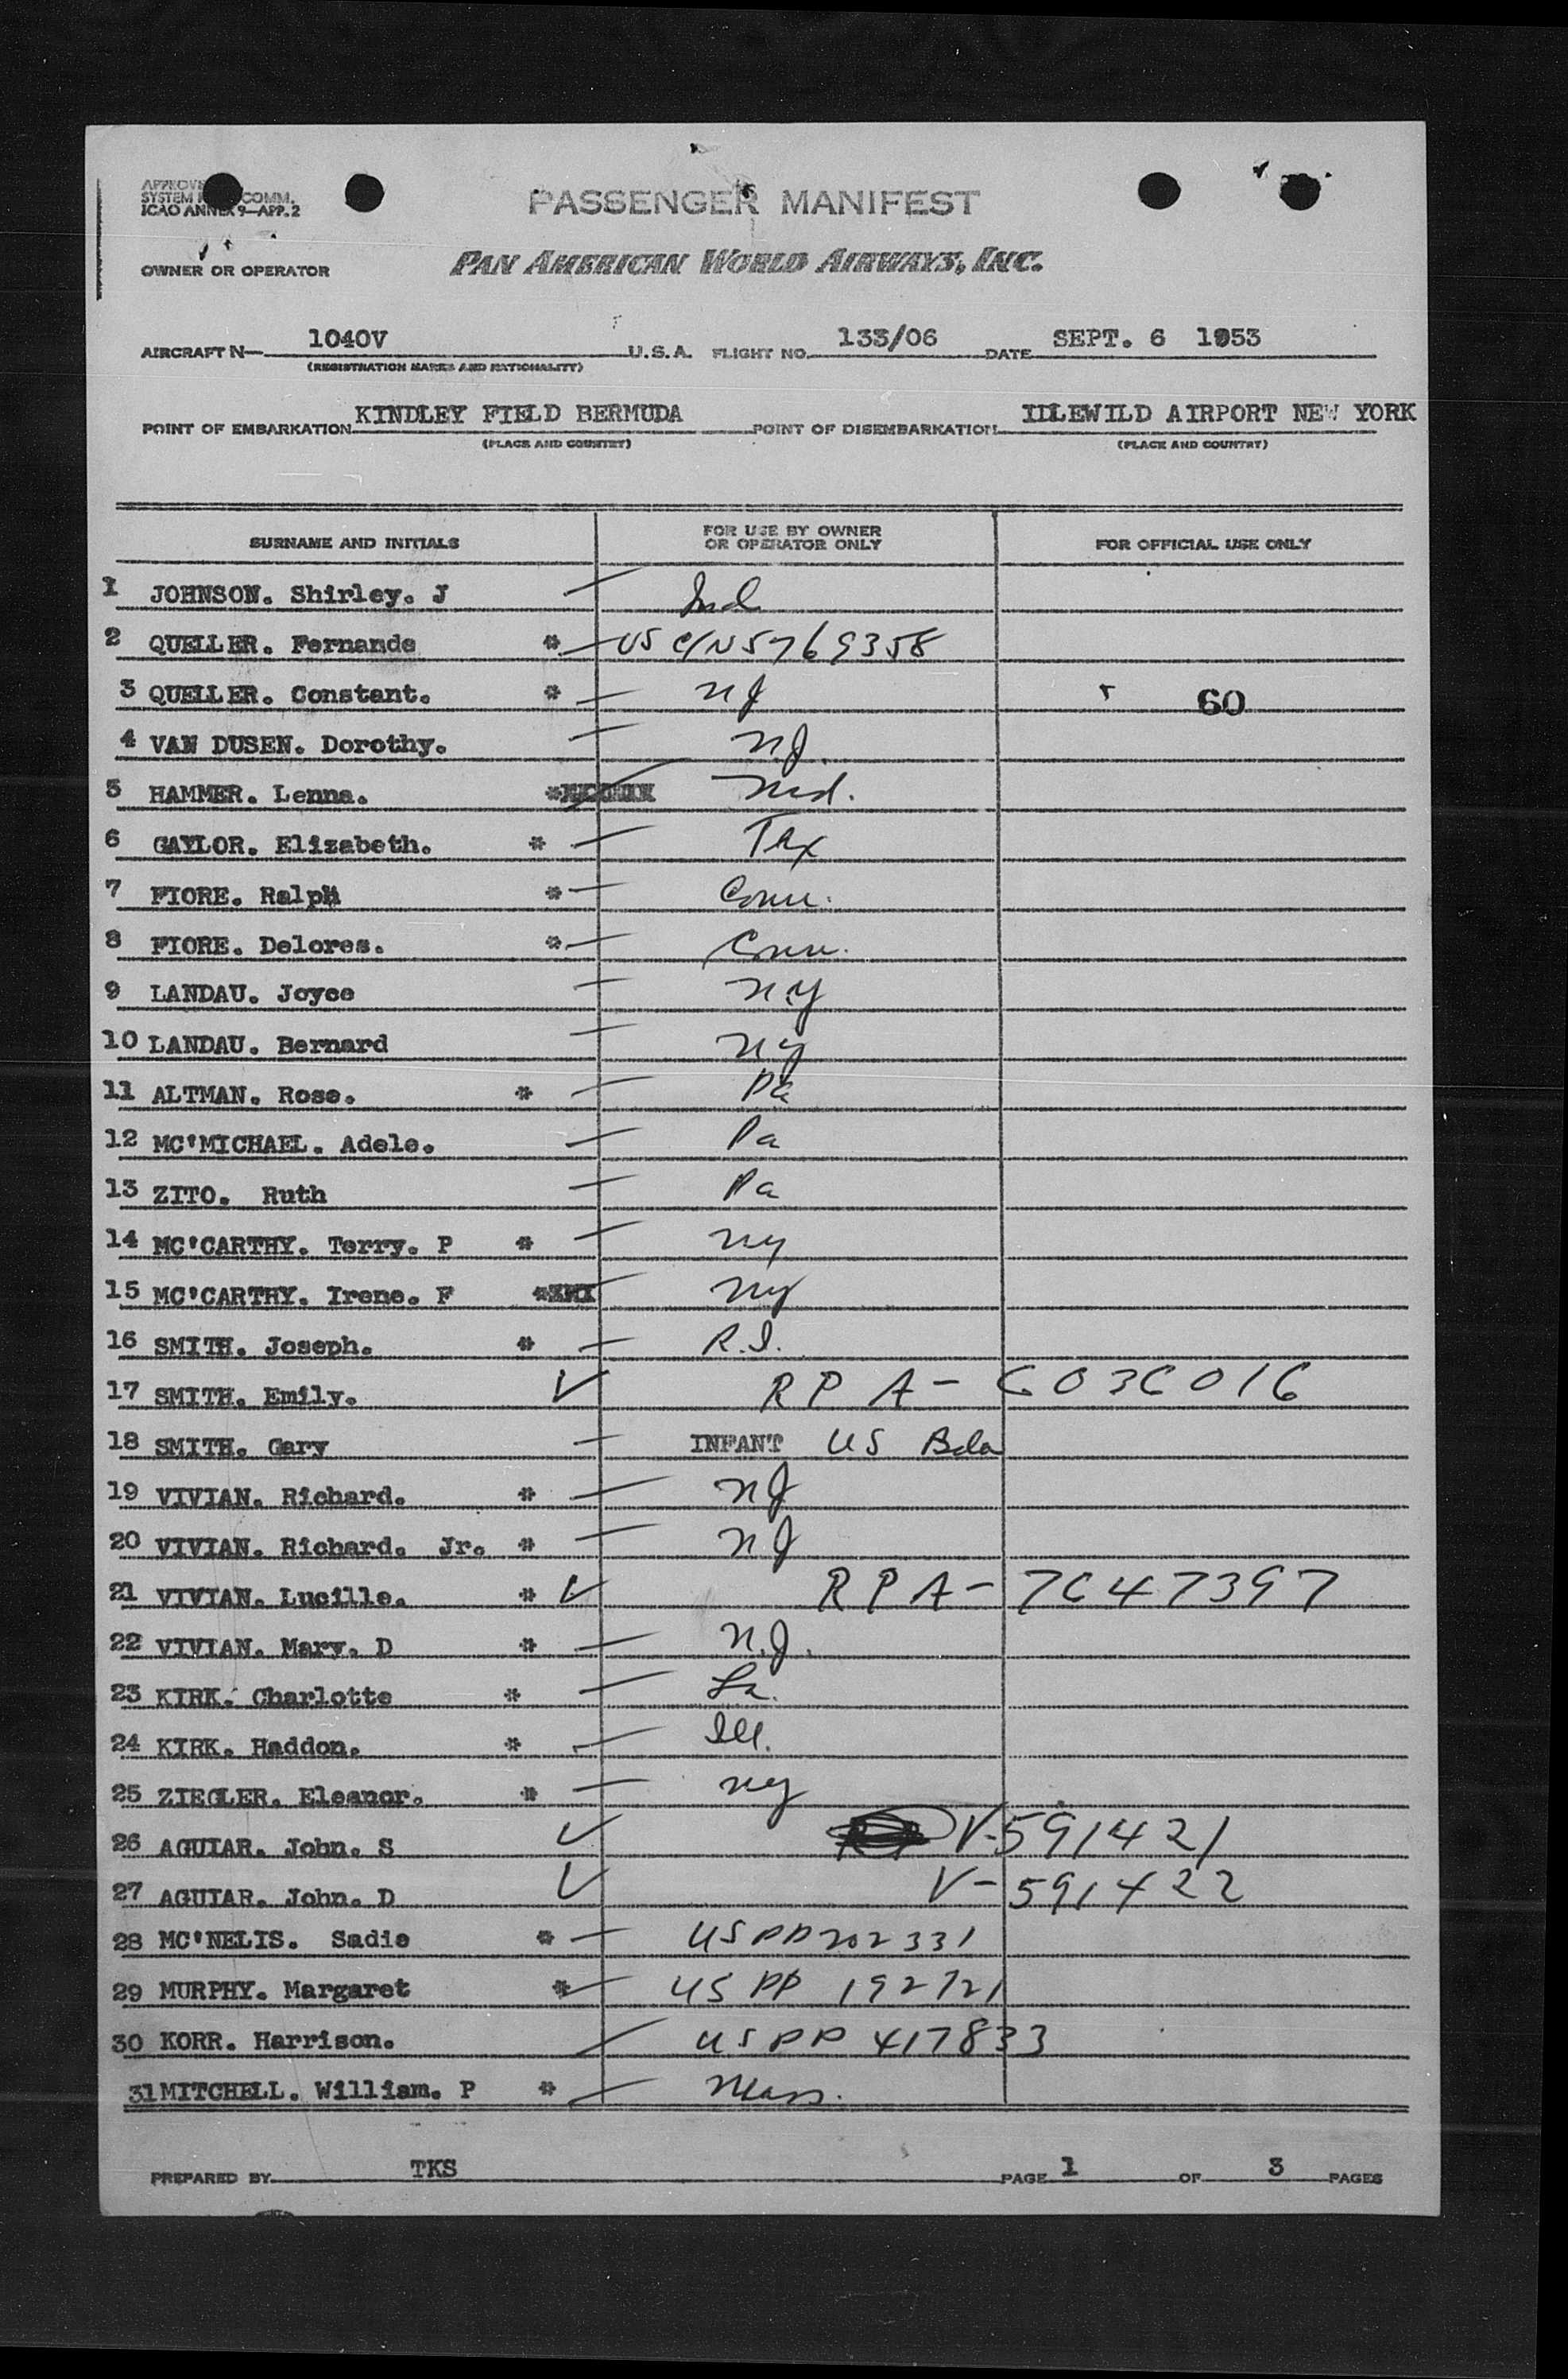 PASSENGER MANIFEST
SYSTEM COMM.
ICAO ANNEX 9—APP. 2
OWNER OR OPERATOR PAN AMERICAN WORLD AIRWAYS, INC.
AIRCRAFT N— 1040V U.S.A. FLIGHT NO. 133/06 DATE SEPT. 6 1953
(REGISTRATION MARKS AND NATIONALITY)
POINT OF EMBARKATION KINDLEY FIELD BERMUDA POINT OF DISEMBARKATION IDLEWILD AIRPORT NEW YORK
(PLACE AND COUNTRY) (PLACE AND COUNTRY)
SURNAME AND INITIALS FOR USE BY OWNER OR OPERATOR ONLY FOR OFFICIAL USE ONLY
1 JOHNSON. Shirley. J — Ind
2 QUELLER. Fernande * — US C/N 5769358
3 QUELLER. Constant. * — NJ 60
4 VAN DUSEN. Dorothy. — N.J.
5 HAMMER. Lenna. * Md.
6 GAYLOR. Elizabeth. * — Tex
7 FIORE. Ralph * — Conn.
8 FIORE. Delores. * — Conn.
9 LANDAU. Joyce — NY
10 LANDAU. Bernard — NY
11 ALTMAN. Rose. * — Pa
12 MC'MICHAEL. Adele. — Pa
13 ZITO. Ruth — Pa
14 MC'CARTHY. Terry. P * — NY
15 MC'CARTHY. Irene. F * NY
16 SMITH. Joseph. * — R.I.
17 SMITH. Emily. ✓ R P A- 6036016
18 SMITH. Gary — INFANT US Bda
19 VIVIAN. Richard. * — NJ
20 VIVIAN. Richard. Jr. * — NJ
21 VIVIAN. Lucille. * ✓ R P A- 7647397
22 VIVIAN. Mary. D * — N.J.
23 KIRK. Charlotte * — La.
24 KIRK. Haddon. * — Ill.
25 ZIEGLER. Eleanor. * — NY
26 AGUIAR. John. S ✓ V-591421
27 AGUIAR. John. D ✓ V-591422
28 MC'NELIS. Sadie * — US PP 202331
29 MURPHY. Margaret * — US PP 192721
30 KORR. Harrison. — US PP 417833
31 MITCHELL. William. P * — Mass.
PREPARED BY TKS PAGE 1 OF 3 PAGES